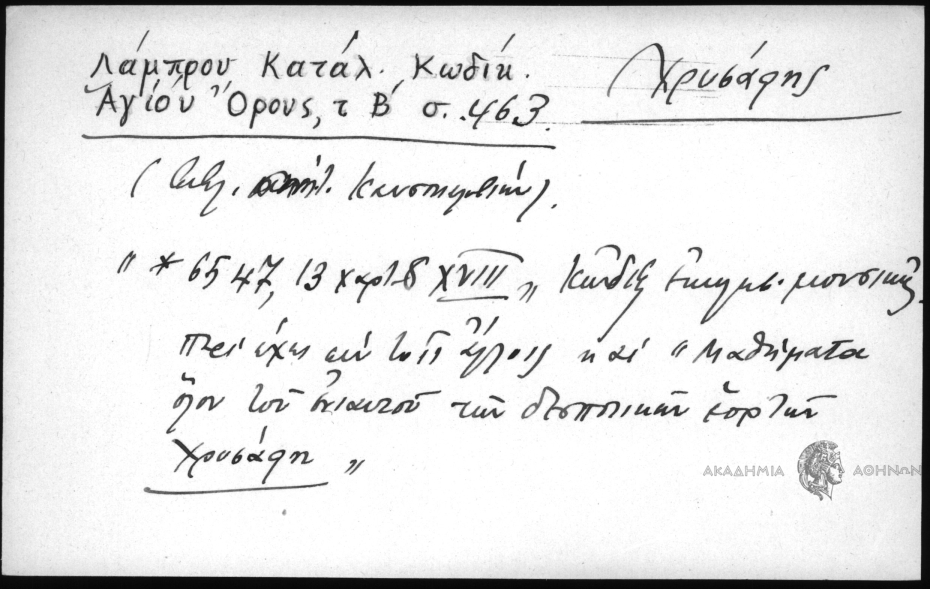 Λάμπρου Κατάλ. Κωδίκ.
Ἁγίου Ὄρους, τ Β΄ σ. 463.
Χρυσάφης
" * 6547, 13 χαρτ. 8 XVIII " Κῶδιξ ἐκκλησ. μουσικῆς.
Περιέχει σὺν τοῖς ἄλλοις καὶ " Μαθήματα
ὅλου τοῦ ἐνιαυτοῦ τῶν δεσποτικῶν ἑορτῶν
Χρυσάφη "
ΑΚΑΔΗΜΙΑ ΑΘΗΝΩΝ